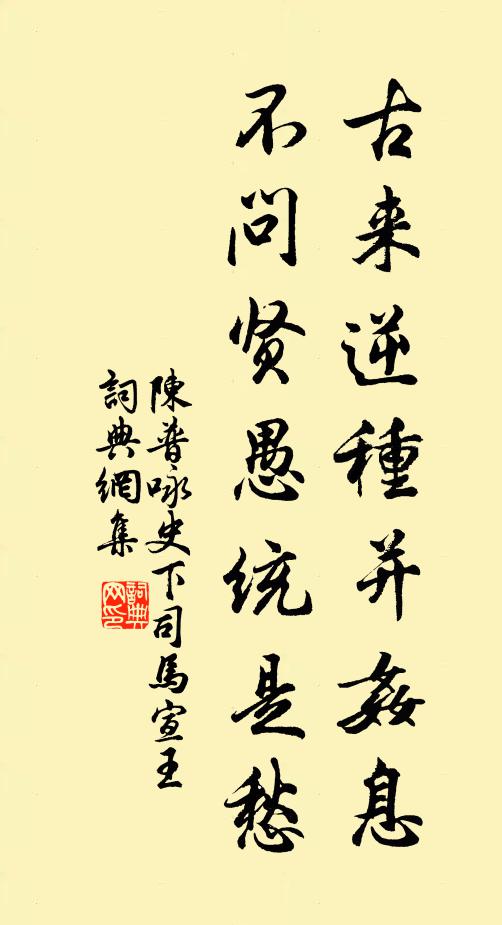 古来逆種并姦息
不问贤愚统是愁
陳普咏史下司馬宣王
詞典網集
詞典網印